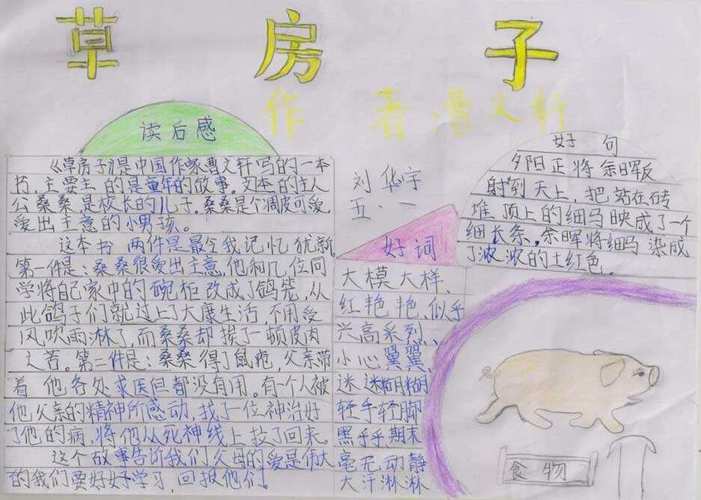 草房子
作者曹文轩
读后感
《草房子》是中国作家曹文轩写的一本
书,主要主的是童年的故事。文本的主人
公桑桑是校长的儿子,桑桑是个调皮可爱,
爱出主意的小男孩。
这本书两件是最令我记忆犹新
第一件是:桑桑很爱出主意,他和几位同
学将自己家中的碗柜改成了鸽笼,从
此鸽子们就过上了大康生活不用受
风吹雨淋了,而桑桑却挨了一顿皮肉
之苦。第二件是:桑桑得了鼠疮,父亲带
着他各处求医但都没有用。有个人被
他父亲的精神所感动,找了一位神治好
了他的病,将他从死神线上拉了回来。
这个故事告诉我们父母的爱是伟大
的我们要好好学习,回报他们。
刘华宇
五.一
好词
大模大样、
红艳艳、似乎
兴高采烈、
小心翼翼、
迷迷糊糊
轻手轻脚
黑乎乎期末
毫无动静
大汗淋淋
好句
夕阳正将余晖反
射到天上,把站在砖
堆顶上的细马映成了一个
细长条。余晖将细马染成
了浓浓的土红色。
食物